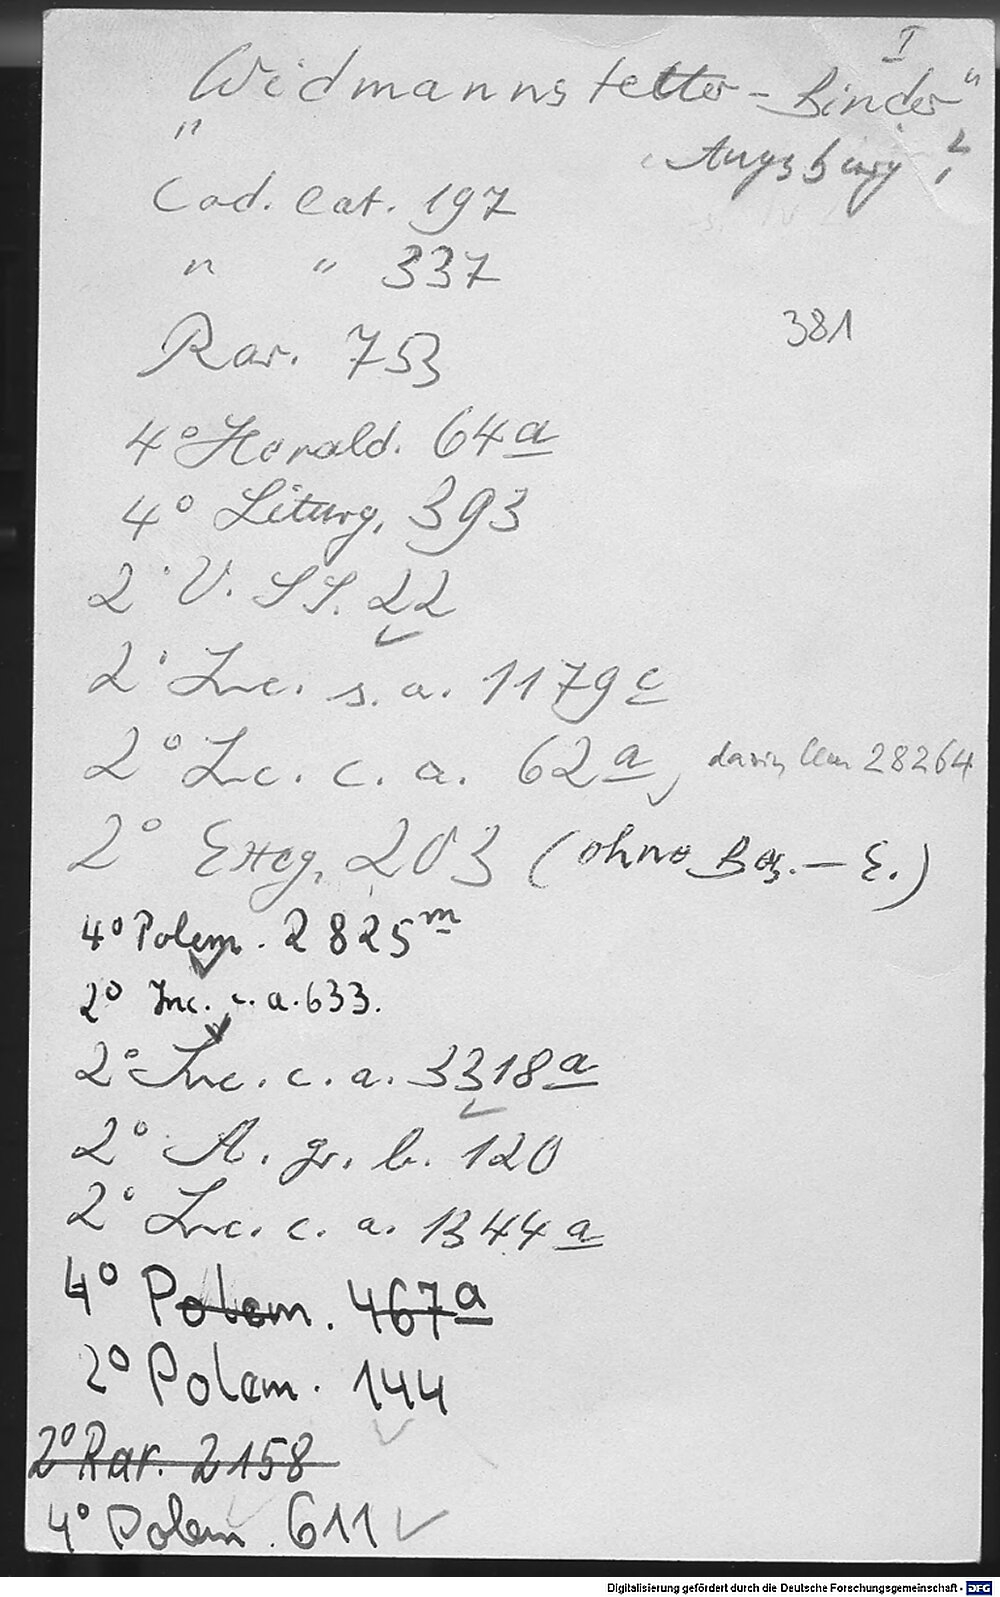 I
"Widmannstetter-Binder"
Augsburg?
Cod. lat. 197
" " 337
381
Rar. 753
4° Herald. 64a
4° Liturg. 393
2° V. SS. 22
2° Inc. s. a. 1179c
2° Inc. c. a. 62a, darin Clm 28264
2° Exeg. 203 (ohne Bez.-E.)
4° Polem. 2825m
2° Inc. c. a. 633.
2° Inc. c. a. 3318a
2° A. gr. b. 120
2° Inc. c. a. 1344a
4° Polem. 467a
2° Polem. 144
2° Rar. 2158
4° Polem. 611
Digitalisierung gefördert durch die Deutsche Forschungsgemeinschaft - DFG